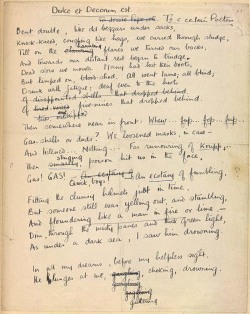 Dulce et Decorum est.
To a certain Poetess
Bent double, like old beggars under sacks,
Knock-kneed, coughing like hags, we cursed through sludge,
Till on the haunting flares we turned our backs,
And towards our distant rest began to trudge.
Dead slow we moved. Many had lost their boots,
But limped on, blood-shod. All went lame; all blind;
Drunk with fatigue; deaf even to the hoots
Of disappointed shells that dropped behind.
Of five-nines that dropped behind.
Then somewhere near in front: Whew... fup... fop... fup...
Gas-shells or duds? We loosened masks, in case—
And listened.... Nothing.... Far rumouring of Krupp;
stinging
Then poison hit us in the face,
Gas! GAS! An ecstasy of fumbling,
Quick, boys!
Fitting the clumsy helmets just in time.
But someone still was yelling out, and stumbling,
And floundering like a man in fire or lime.—
Dim, through the misty panes and green light,
As under a dark sea, I saw him drowning.
In all my dreams, before my helpless sight,
He plunges at me, choking, drowning.
guttering